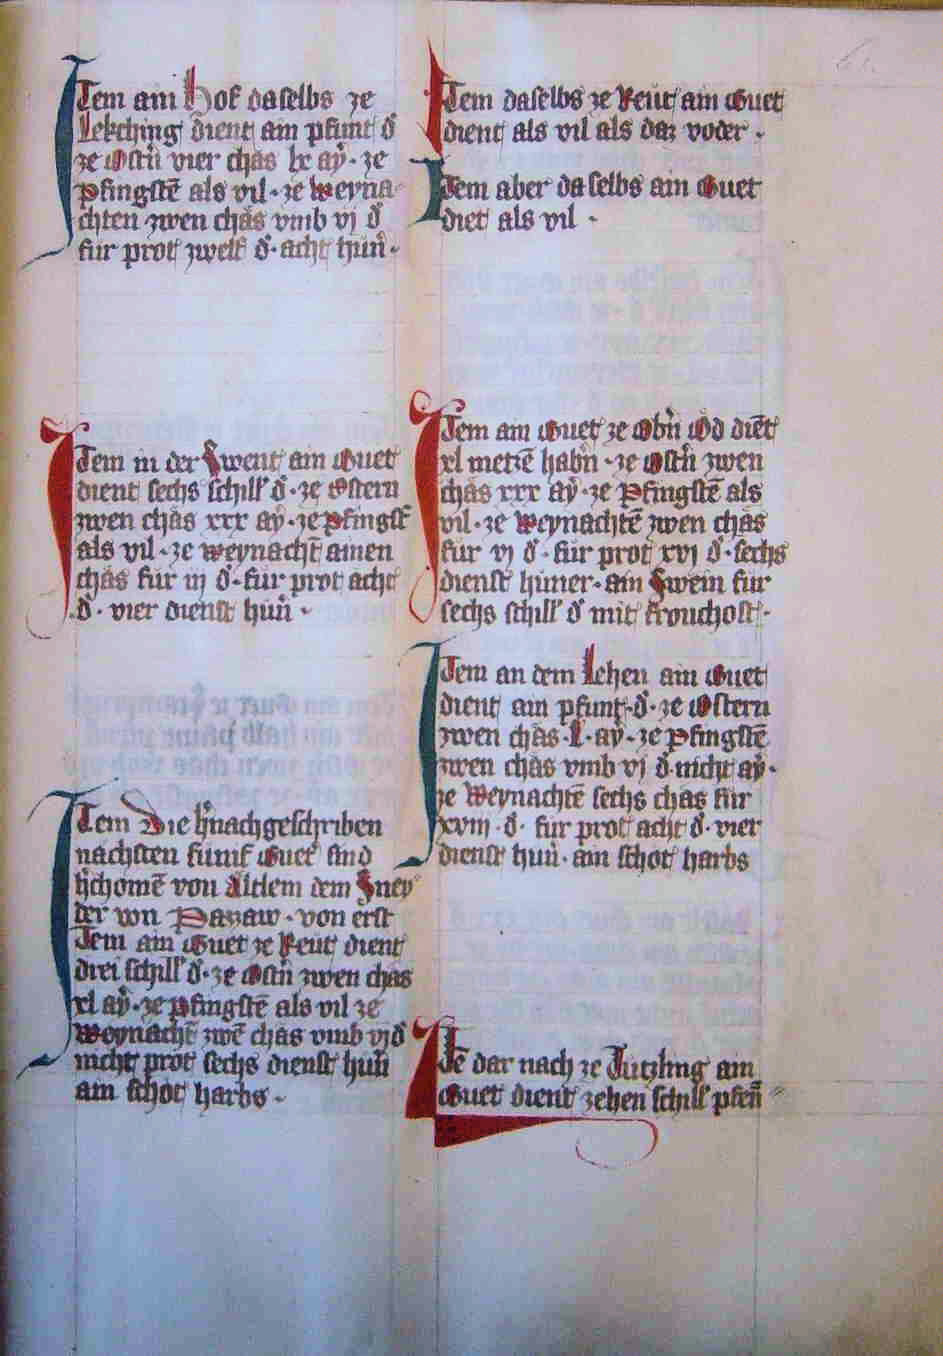 Item ain Hof daselbs ze
Lekching dient ain pfunt d̄
ze Ostn̄ vier chäs lx aÿ · ze
Pfingstē als vil · ze Weyna
chten zwen chäs vmb vj d̄
fur prot zwelf d̄ · acht hun̄ ·
Item in der Swent ain Guet
dient sechs schill d̄ · ze Ostern
zwen chäs xxx aÿ · ze Pfingst̄
als vil · ze weynacht̄ ainen
chäs für iij d̄ · fur prot acht
d̄ · vier dienst hun̄ ·
Item Die h̄nachgeschriben
nachsten funf Guet sind
h̄chomē von dem Sney
der von Pazaw · von erst
Item ain Guet ze Reut dient
drei schill d̄ · ze Ostn̄ zwen chäs
xl aÿ · ze pfingstē als vil ze
Weynachtē zwē chäs vmb vj d̄
nicht prot sechs dienst hun̄
ain schöt harbs ·
Item daselbs ze Reut ain Guet
dient als vil als daz voder ·
Item aber daselbs ain Guet
diet als vil ·
Item ain Guet ze Obn̄ Öd diēt
xl metzē habn̄ · ze Ostn̄ zwen
chäs xxx aÿ · ze Pfingstē als
vil · ze Weynachtē zwen chäs
fur vj d̄ · fur prot xvj d̄ · sechs
dienst hüner · ain Swein fur
sechs schill d̄ mit frouchost ·
Item an dem Lehen ain Guet
dient ain pfunt · d̄ · ze Ostern
zwen chäs · L · aÿ · ze Pfingstē
zwen chäs vmb vj d̄ nicht aÿ ·
ze Weynachtē sechs chäs fur
xviij · d̄ · fur prot acht d̄ · vier
dienst hun̄ · ain schöt harbs
Itē dar nach ze Tutzling ain
Guet dient zehen schill pfen̄